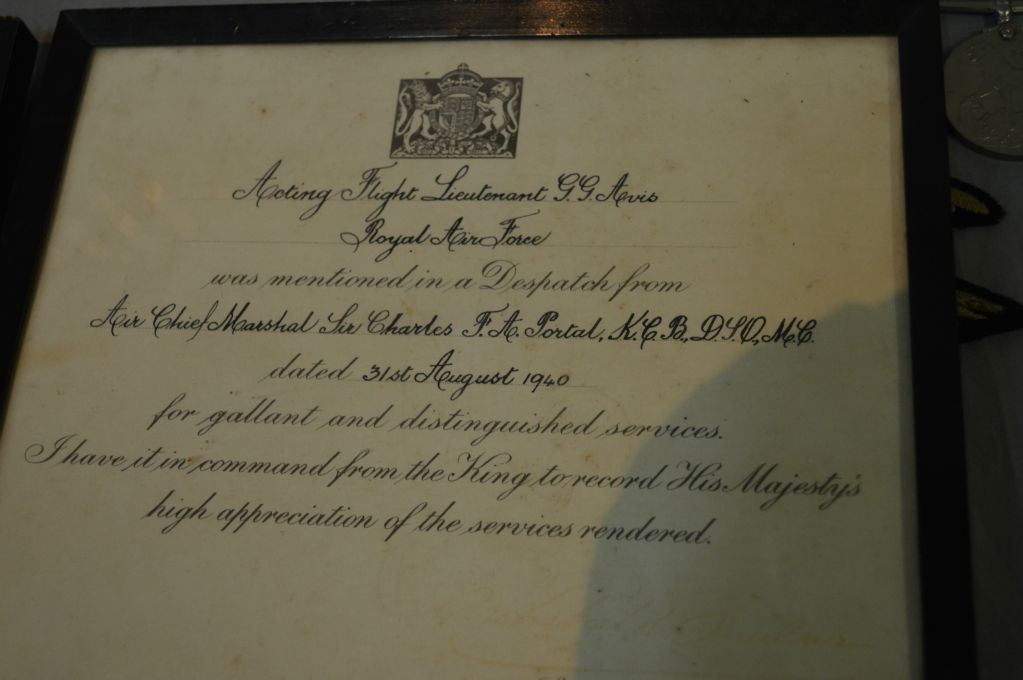 Acting Flight Lieutenant G.G. Avis
Royal Air Force
was mentioned in a Despatch from
Air Chief Marshal Sir Charles F.A. Portal, K.C.B., D.S.O., M.C.
dated 31st August 1940
for gallant and distinguished services.
I have it in command from the King to record His Majesty's
high appreciation of the services rendered.